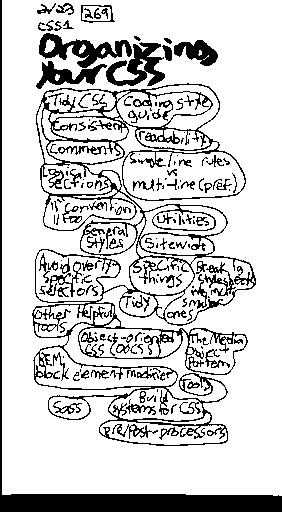 2/23 269
CSS1
Organizing
Your CSS
Tidy CSS
Coding style
guide
Consistent
readability
Comments
Single line rules
vs
multi-line (pref.
Logical
sections
convention
Utilities
General
Styles
Sitewide
Avoid overly
specific
selectors
Specific
things
Break big
stylesheets
into multi
smaller
ones
Tidy
Other Helpful
Tools
Object-oriented
CSS (OOCSS)
The Media
Object
Pattern
BEM
block element modifier
Tools
Sass
Build
systems for CSS
pre/post-processors